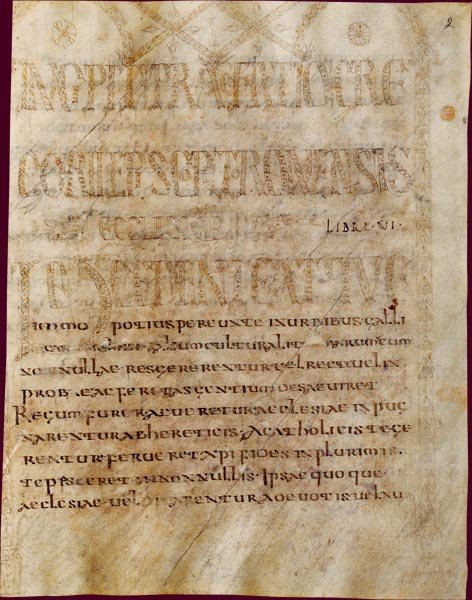 2
GRE
GORII EPS TRONENSIS
ECCLESIAE LIBRI VI
immo potius pereunte in urbibus galli
cultura litterarum cum
nonnullae res gererentur vel recte vel in
probe ac feritas gentium desaeviret
Regum furor acueretur aeclesiae inpug
narentur ab hereticis · a catholicis tege
rentur ferveret xpi fides in plurimis ·
tepisceret in nonnullis · Ipsae quoque
aeclesiae vel ditarentur a devotis vel nu